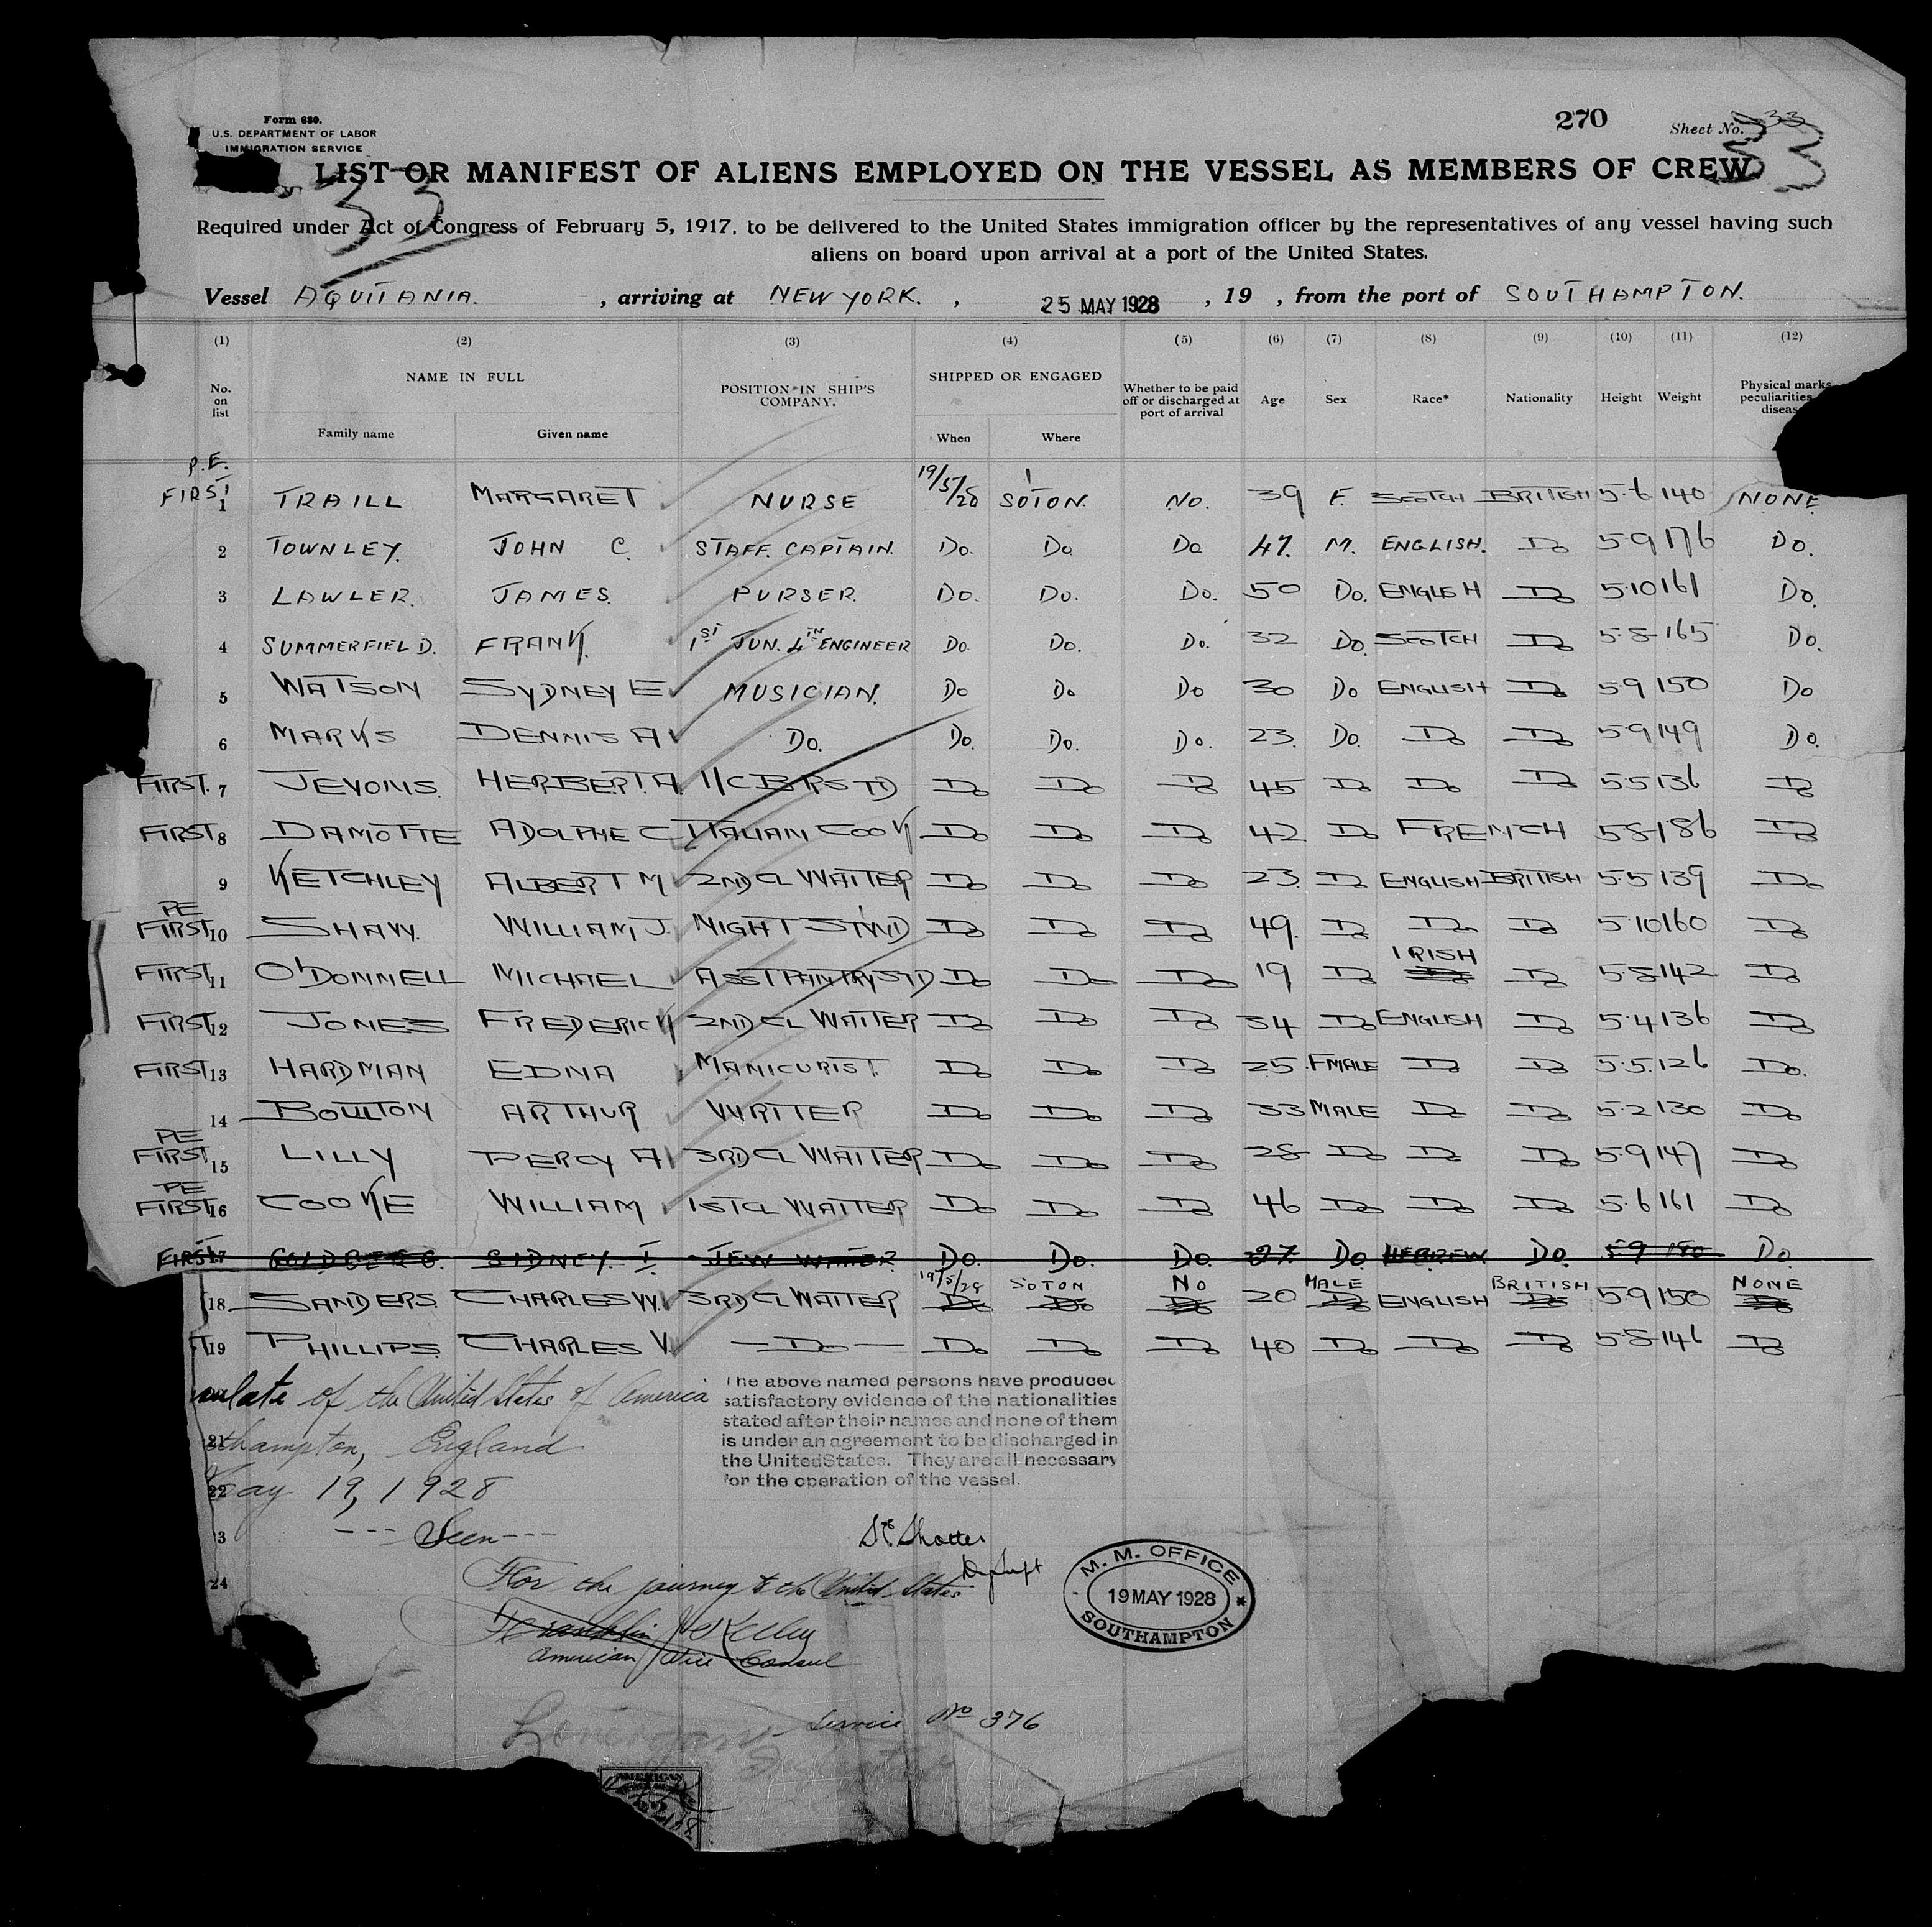 Form 680.
U.S. DEPARTMENT OF LABOR
IMMIGRATION SERVICE
270
Sheet No. 33
33
33
LIST OR MANIFEST OF ALIENS EMPLOYED ON THE VESSEL AS MEMBERS OF CREW
Required under Act of Congress of February 5, 1917, to be delivered to the United States immigration officer by the representatives of any vessel having such
aliens on board upon arrival at a port of the United States.
Vessel AQUITANIA. , arriving at NEW YORK. , 25 MAY 1928 , 19 , from the port of SOUTHAMPTON.
(1) (2) (3) (4) (5) (6) (7) (8) (9) (10) (11) (12)
No. on list NAME IN FULL Family name Given name POSITION IN SHIP'S COMPANY. SHIPPED OR ENGAGED When Where Whether to be paid off or discharged at port of arrival Age Sex Race* Nationality Height Weight Physical marks, peculiarities
P.E.
FIRST 1 TRAILL MARGARET NURSE 19/5/28 SOTON. NO. 39 F. SCOTCH BRITISH 5·6 140 NONE
2 TOWNLEY. JOHN C. STAFF. CAPTAIN. Do. Do. Do 47. M. ENGLISH. Do 5·9 176 Do.
3 LAWLER. JAMES. PURSER. Do. Do. Do. 50 Do. ENGLISH Do 5·10 161 Do.
4 SUMMERFIELD. FRANK. 1ST JUN. 4TH ENGINEER Do. Do. Do. 32 Do. SCOTCH Do 5·8 165 Do.
5 WATSON SYDNEY E MUSICIAN. Do Do Do 30 Do ENGLISH Do 5·9 150 Do
6 MARKS DENNIS A Do. Do. Do. Do. 23. Do. Do Do 5·9 149 Do.
FIRST. 7 JEVONS. HERBERT. A. 1/C B R STD Do Do Do 45 Do Do Do 5·5 136 Do
FIRST 8 DAMOTTE ADOLPHE C ITALIAN COOK Do Do Do 42 Do FRENCH 5·8 186 Do
9 KETCHLEY ALBERT M 2ND CL WAITER Do Do Do 23. Do ENGLISH BRITISH 5·5 139 Do
PE
FIRST 10 SHAW. WILLIAM J. NIGHT STWD Do Do Do 49. Do Do Do 5·10 160 Do
FIRST 11 O'DONNELL MICHAEL ASST PANTRY STD Do Do Do 19 Do IRISH Do 5·8 142 Do
FIRST 12 JONES FREDERICK 2ND CL WAITER Do Do Do 34 Do ENGLISH Do 5·4 136 Do
FIRST 13 HARDMAN EDNA MANICURIST. Do Do Do 25 FMALE Do Do 5·5. 126 Do.
14 BOULTON ARTHUR WRITER Do Do Do 33 MALE Do Do 5·2 130 Do
PE
FIRST 15 LILLY PERCY A 3RD CL WAITER Do Do Do 28 Do Do Do 5·9 147 Do
PE
FIRST 16 COOKE WILLIAM 1ST CL WAITER Do Do Do 46 Do Do Do 5·6 161 Do
FIRST 17 GOLDBERG. SIDNEY. I. JEW WAITER Do. Do. Do. 27. Do. HEBREW Do. 5·9 Do.
18 SANDERS. CHARLES W. 3RD CL WAITER 19/5/28 SOTON NO 20 MALE ENGLISH BRITISH 5·9 150 NONE
19 PHILLIPS. CHARLES V. Do Do Do Do 40 Do Do Do 5·8 146 Do
ulate of the United States of America
21 thampton, England
22 ay 19, 1928
3 --- Seen ---
24 For the journey to the United States
Franklin
American Vice Consul
The above named persons have produced
satisfactory evidence of the nationalities
stated after their names and none of them
is under an agreement to be discharged in
the United States. They are all necessary
for the operation of the vessel.
M. M. OFFICE
19 MAY 1928
SOUTHAMPTON
Service No 376
AMERICAN